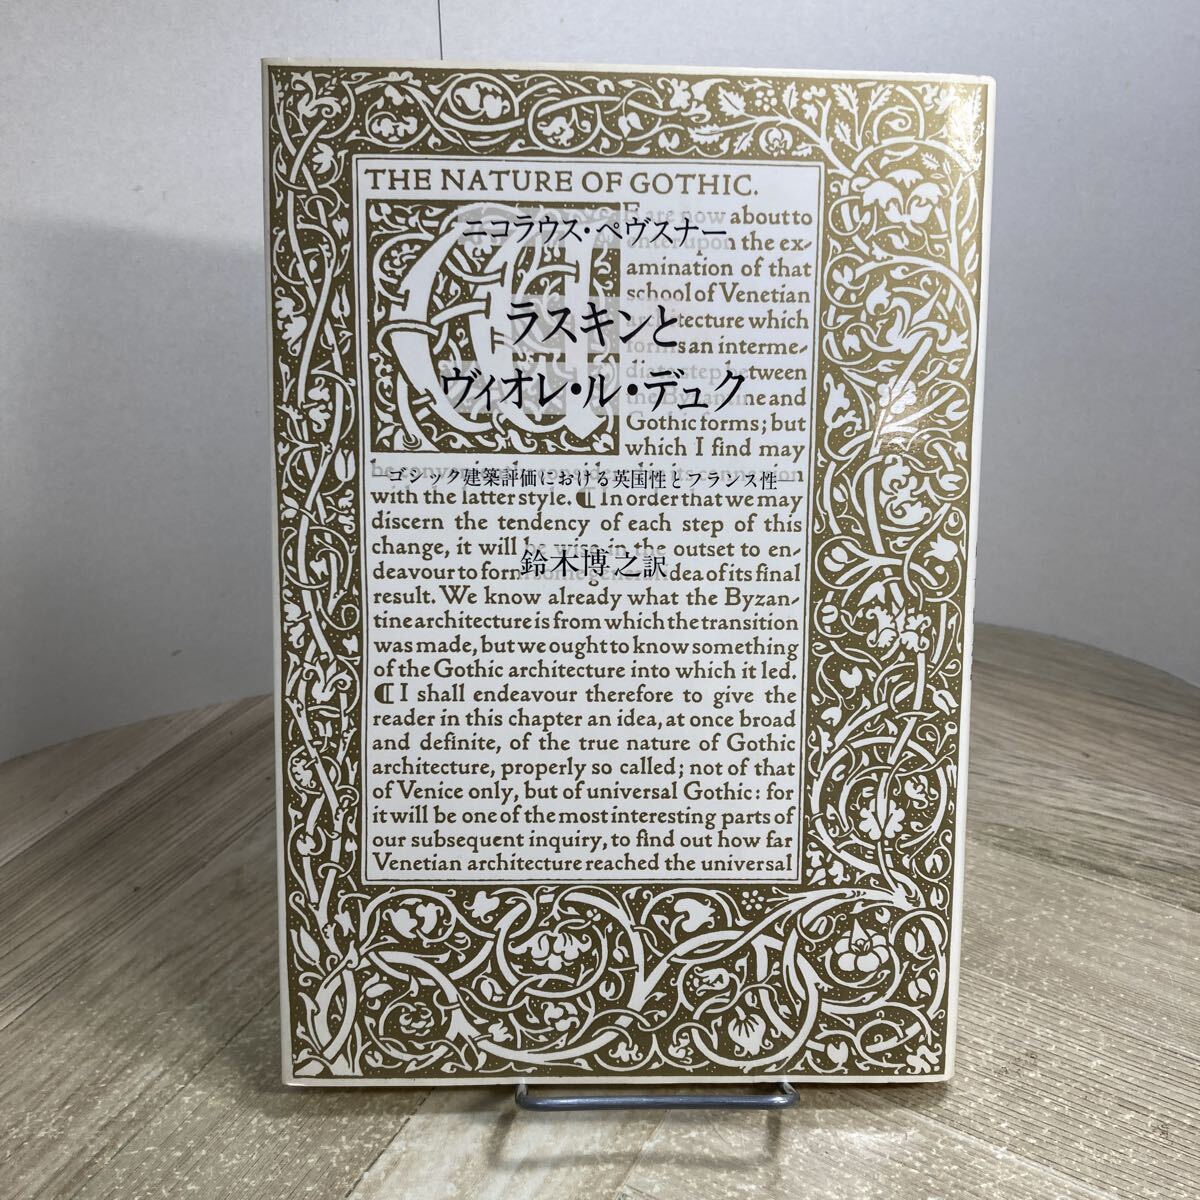 THE NATURE OF GOTHIC.
ニコラウス・ペヴスナー
ラスキンと
ヴィオレ・ル・デュク
―ゴシック建築評価における英国性とフランス性―
鈴木博之訳
WE are now about to
enter upon the ex-
amination of that
school of Venetian
architecture which
forms an interme-
diate step between
the Byzantine and
Gothic forms; but
which I find may
be conveniently considered in its connexion
with the latter style. ¶ In order that we may
discern the tendency of each step of this
change, it will be wise in the outset to en-
deavour to form some general idea of its final
result. We know already what the Byzan-
tine architecture is from which the transition
was made, but we ought to know something
of the Gothic architecture into which it led.
¶ I shall endeavour therefore to give the
reader in this chapter an idea, at once broad
and definite, of the true nature of Gothic
architecture, properly so called; not of that
of Venice only, but of universal Gothic: for
it will be one of the most interesting parts of
our subsequent inquiry, to find out how far
Venetian architecture reached the universal